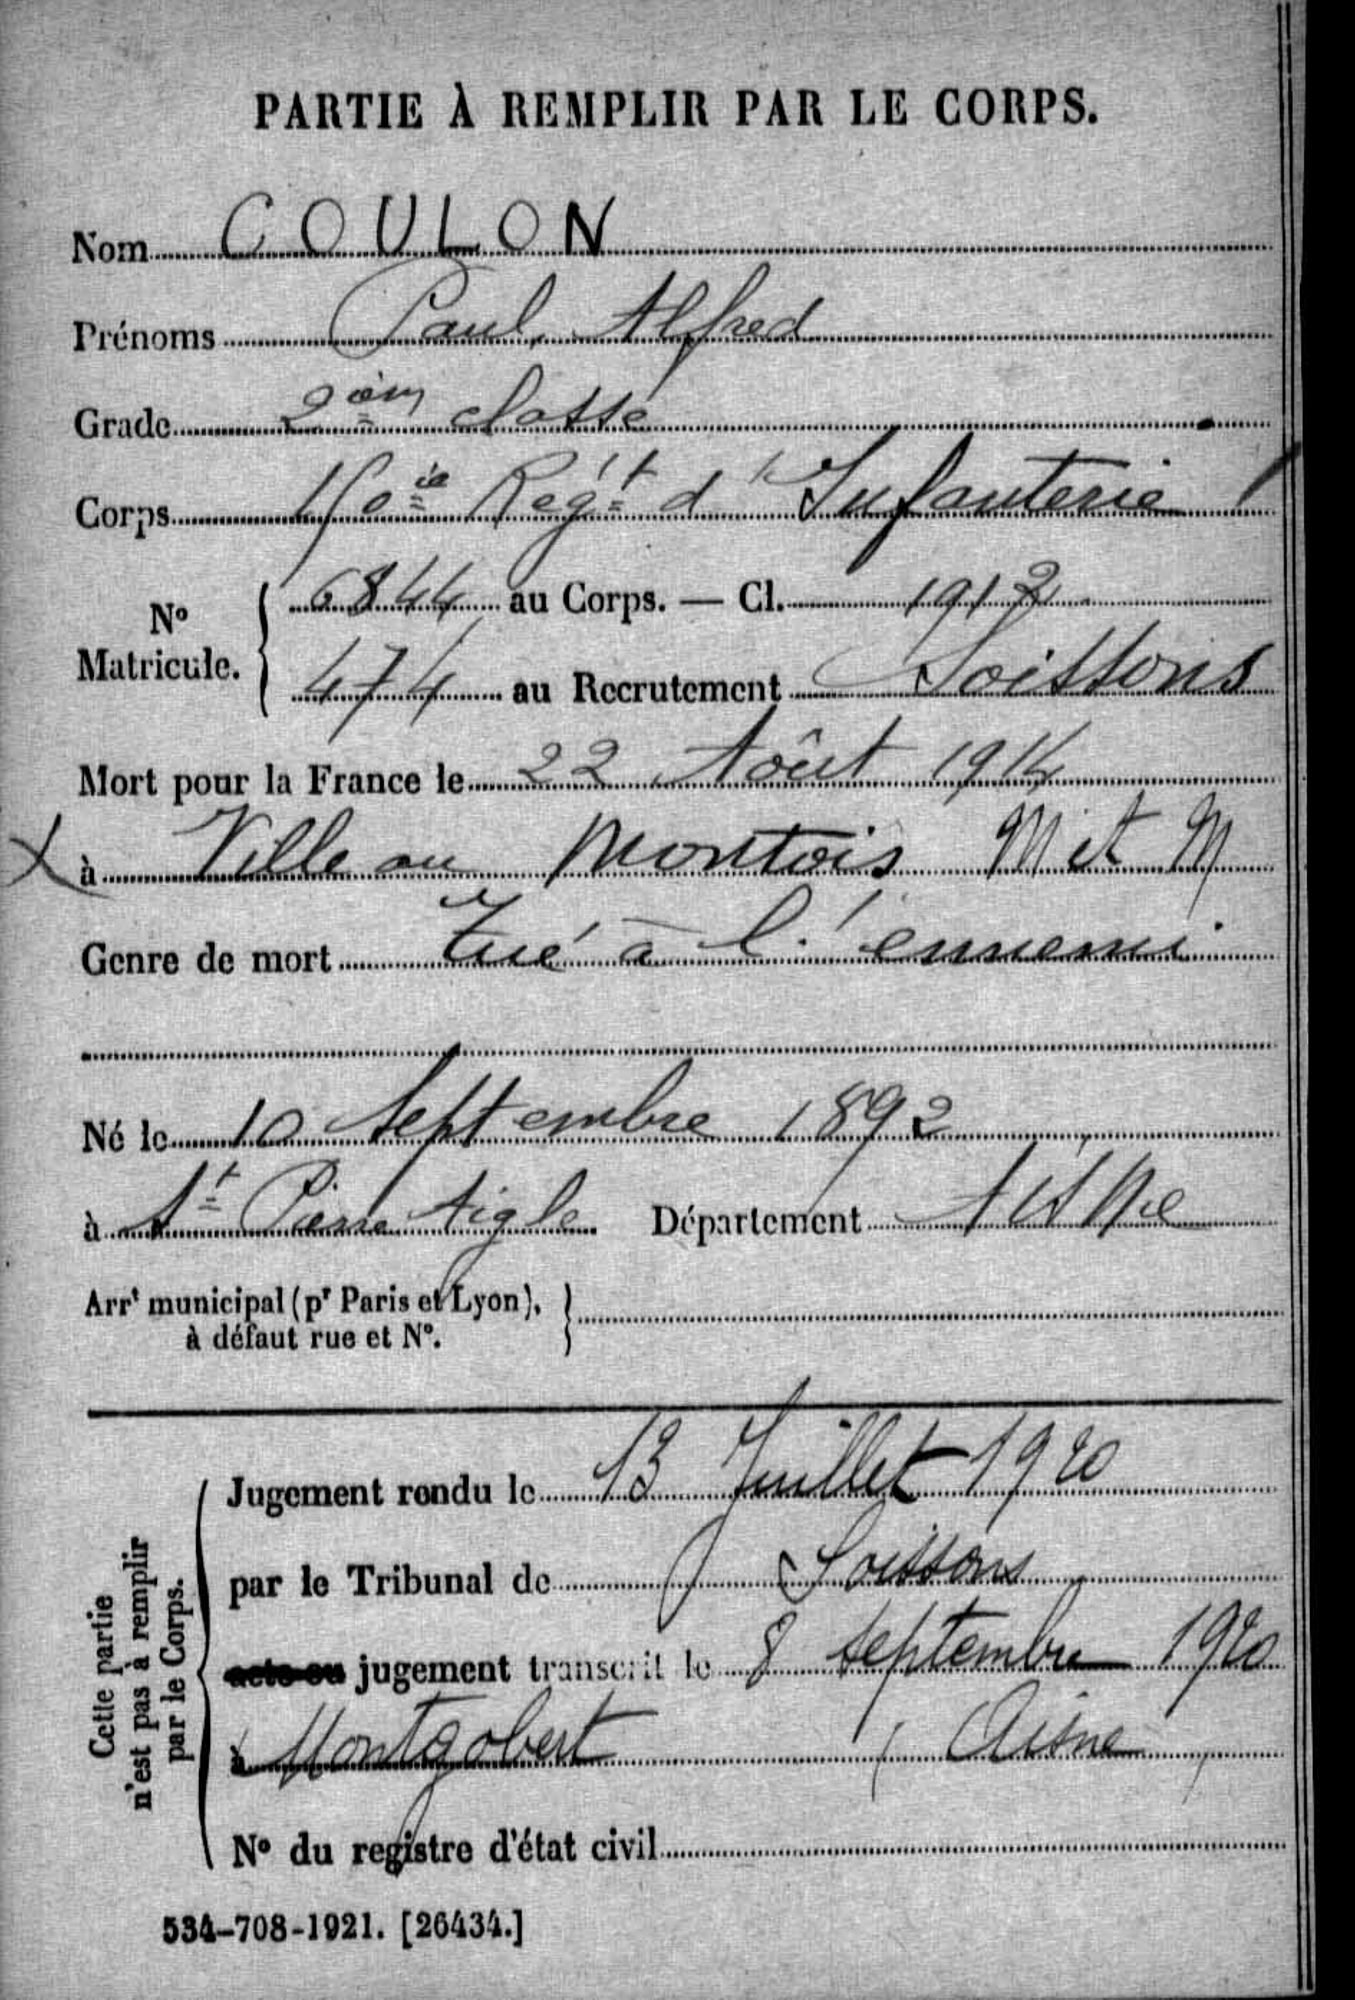 PARTIE À REMPLIR PAR LE CORPS.
Nom COULON
Prénoms Paul, Alfred
Grade 2ème classe
Corps Régt d'Infanterie
No Matricule. 6844 au Corps. — Cl. 1912
474 au Recrutement Soissons
Mort pour la France le 22 Aôut 1914
à Ville au Montois M et M
Genre de mort Tué à l'ennemi
Né le 10 Septembre 1892
à St Pierre Aigle Département Aisne
Arrt municipal (pr Paris et Lyon),
à défaut rue et No.
Cette partie
n'est pas à remplir
par le Corps.
Jugement rendu le 13 Juillet 1920
par le Tribunal de Soissons
acte ou jugement transcrit le 8 septembre 1920
à Montgobert (Aisne)
No du registre d'état civil
534-708-1921. [26434.]